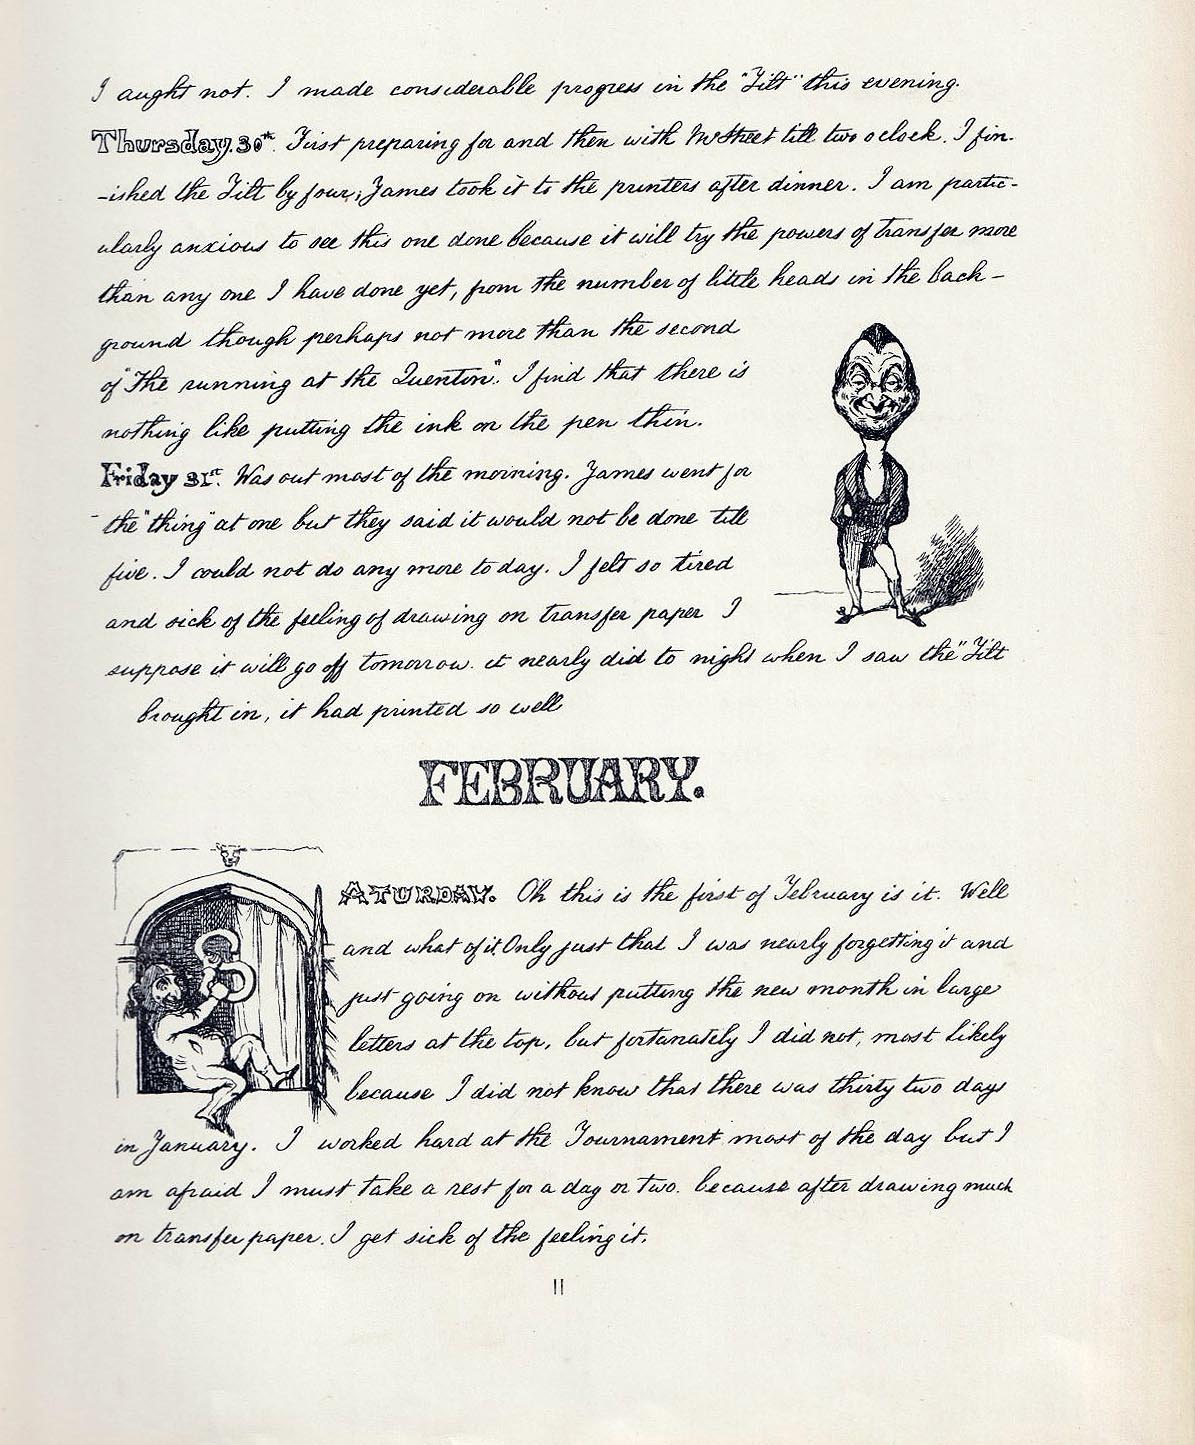 I aught not. I made considerable progress in the "Tilt" this evening.
Thursday. 30th. First preparing for and then with Mr Street till two oclock. I fin-
-ished the Tilt by four; James took it to the printers after dinner. I am partic-
ularly anxious to see this one done because it will try the powers of transfer more
than any one I have done yet, from the number of little heads in the back-
ground though perhaps not more than the second
of "The running at the Quentin". I find that there is
nothing like putting the ink on the pen thin.
Friday 31st. Was out most of the morning. James went for
the "thing" at one but they said it would not be done till
five. I could not do any more to day. I felt so tired
and sick of the feeling of drawing on transfer paper I
suppose it will go off tomorrow. it nearly did to night when I saw the "Tilt
brought in, it had printed so well
FEBRUARY.
SATURDAY. Oh this is the first of February is it. Well
and what of it. Only just that I was nearly forgetting it and
just going on without putting the new month in large
letters at the top, but fortunately I did not, most likely
because I did not know that there was thirty two days
in January. I worked hard at the Tournament most of the day but I
am afraid I must take a rest for a day or two. because after drawing much
on transfer paper. I get sick of the feeling it.
11